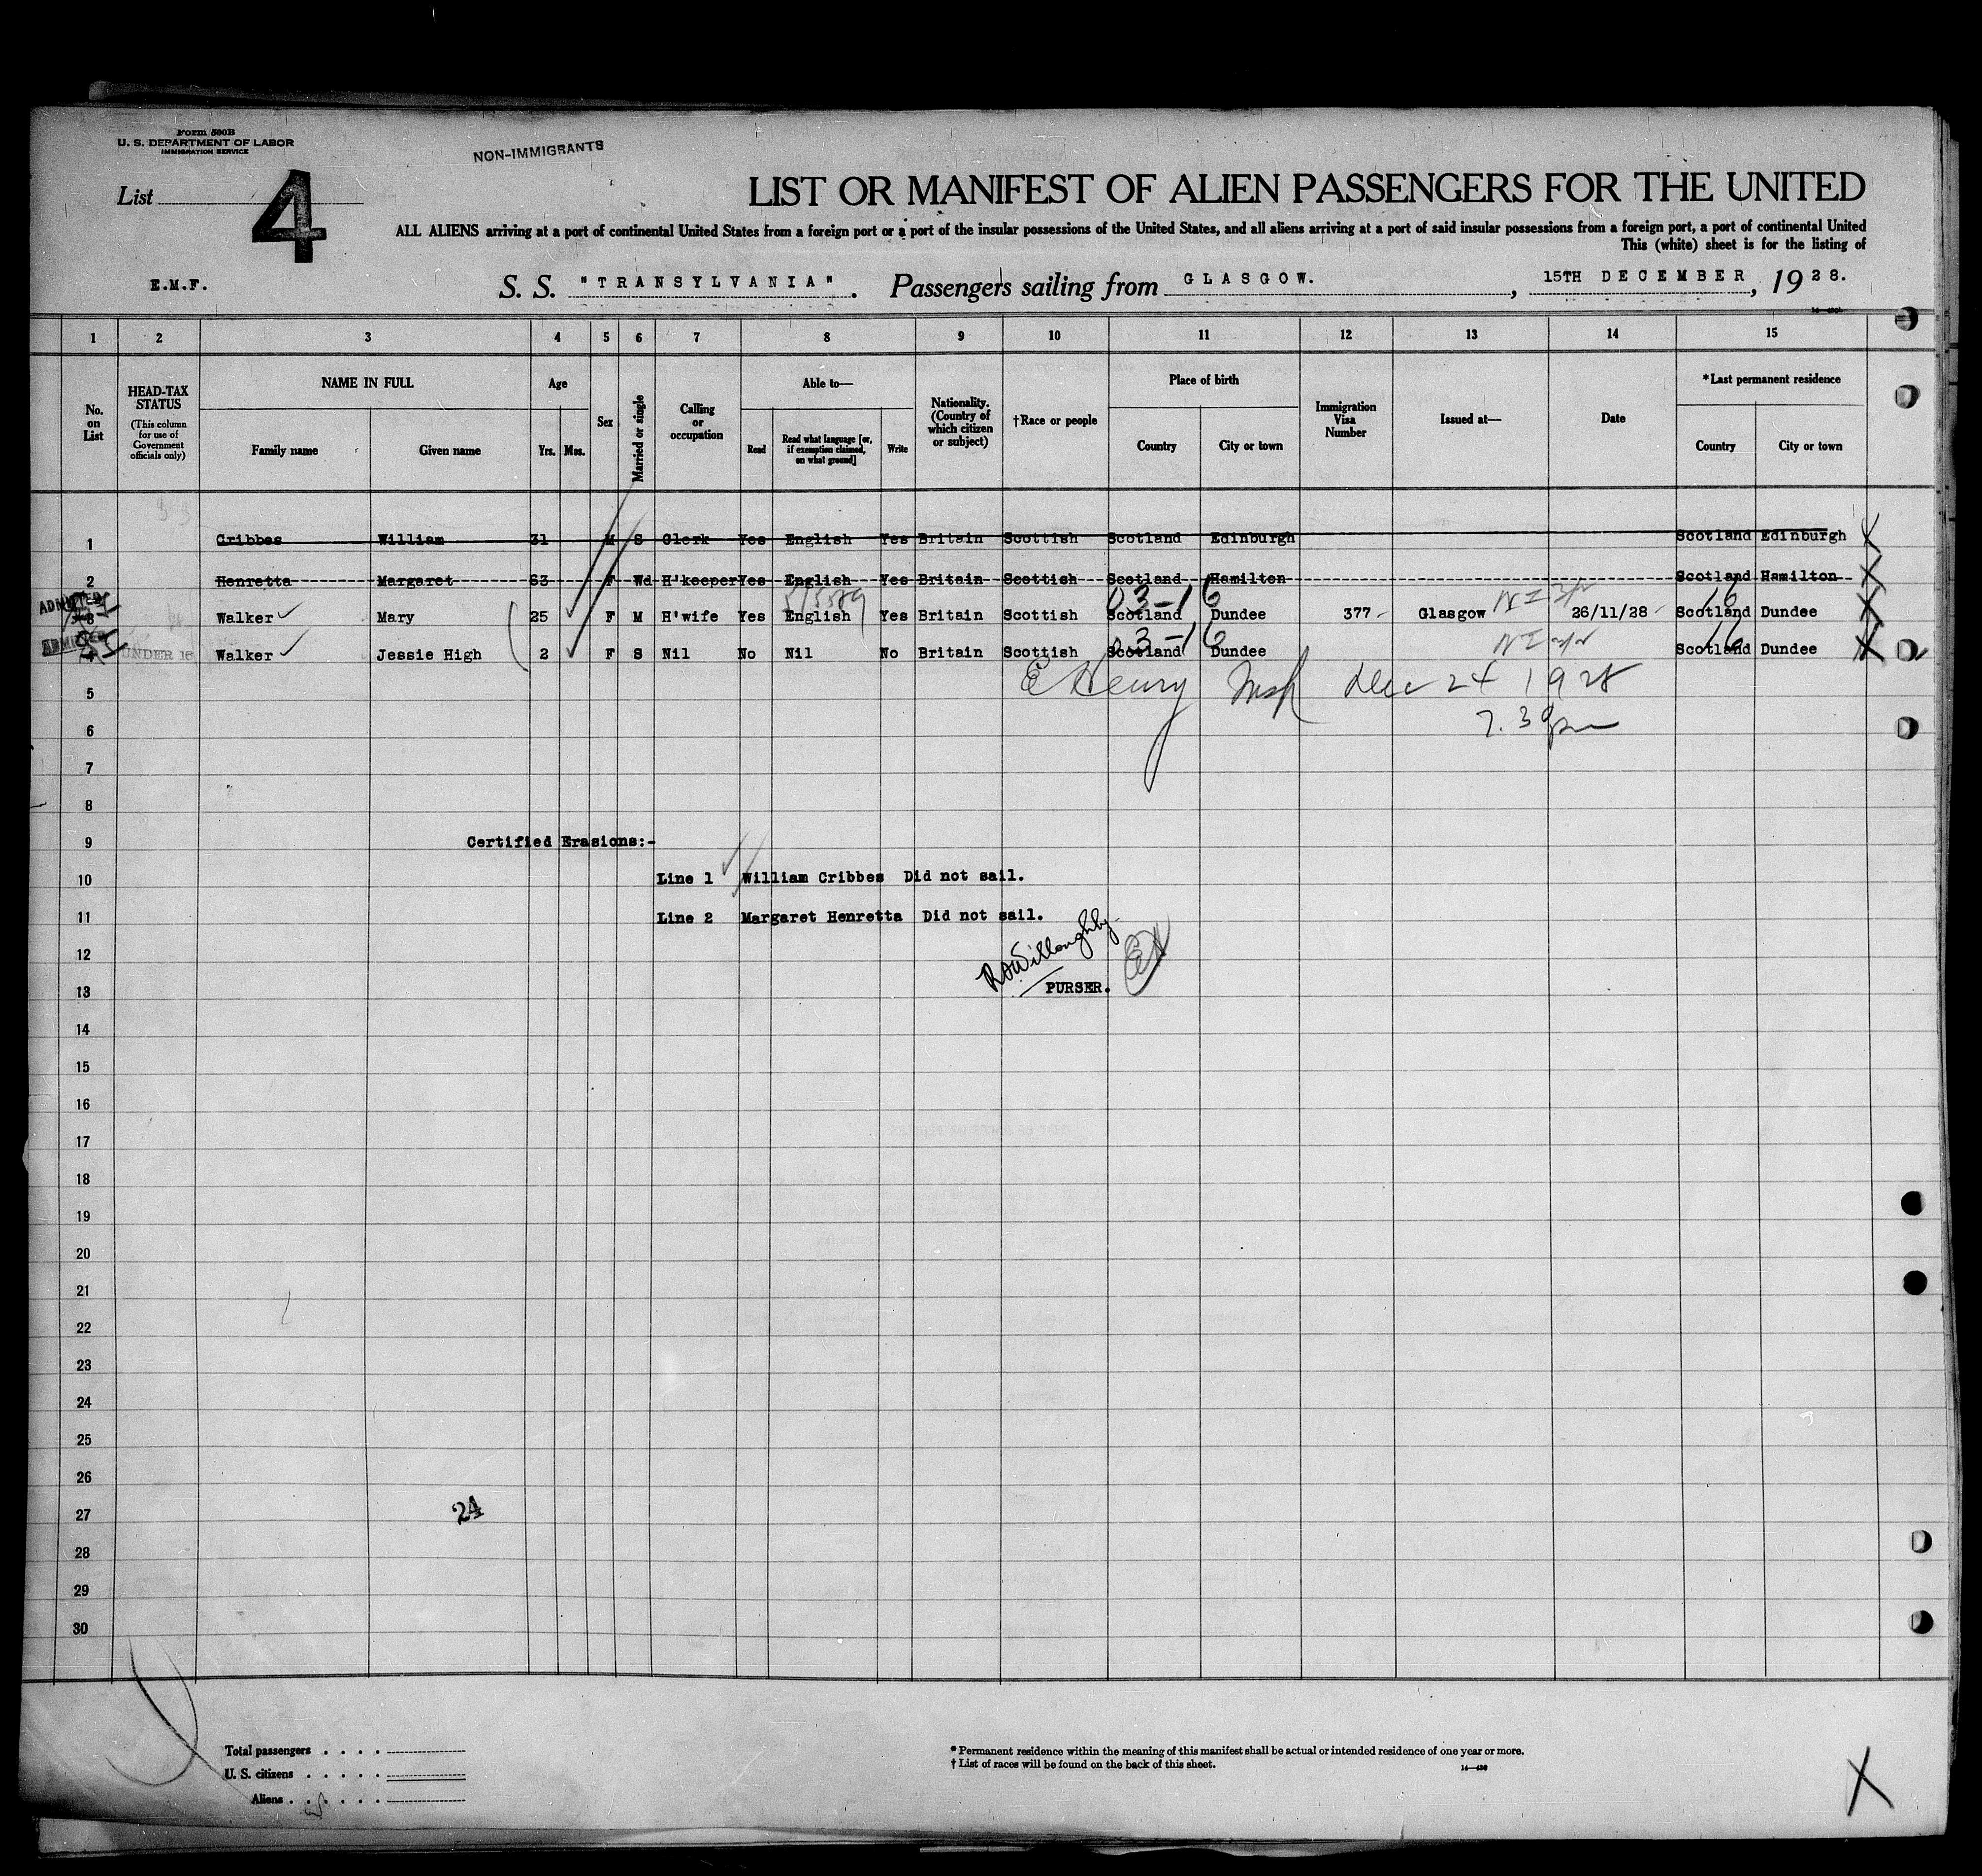 Form 500B
U. S. DEPARTMENT OF LABOR
IMMIGRATION SERVICE
NON-IMMIGRANTS
List 4
LIST OR MANIFEST OF ALIEN PASSENGERS FOR THE UNITED
ALL ALIENS arriving at a port of continental United States from a foreign port or a port of the insular possessions of the United States, and all aliens arriving at a port of said insular possessions from a foreign port, a port of continental United
This (white) sheet is for the listing of
E.M.F.
S. S. "TRANSYLVANIA". Passengers sailing from GLASGOW. , 15TH DECEMBER , 1928.
1 2 3 4 5 6 7 8 9 10 11 12 13 14 15
No. on List
HEAD-TAX STATUS (This column for use of Government officials only)
NAME IN FULL
Family name Given name
Age
Yrs. Mos.
Sex
Married or single
Calling or occupation
Able to—
Read Read what language [or, if exemption claimed, on what ground] Write
Nationality. (Country of which citizen or subject)
†Race or people
Place of birth
Country City or town
Immigration Visa Number
Issued at—
Date
*Last permanent residence
Country City or town
1 Cribbes William 31 M S Clerk Yes English Yes Britain Scottish Scotland Edinburgh Scotland Edinburgh
2 Henretta Margaret 63 F Wd H'keeper Yes English Yes Britain Scottish Scotland Hamilton Scotland Hamilton
ADMITTED
03-16 16
3 Walker Mary 25 F M H'wife Yes English Yes Britain Scottish Scotland Dundee 377 Glasgow 26/11/28 Scotland Dundee
ADMITTED
03-16 16
4 UNDER 16 Walker Jessie High 2 F S Nil No Nil No Britain Scottish Scotland Dundee Scotland Dundee
5 E Henry Insp Dec 24 1928
6 7.30pm
7
8
9 Certified Erasions:-
10 Line 1 William Cribbes Did not sail.
11 Line 2 Margaret Henretta Did not sail.
12 RAWilloughby EH
13 PURSER.
14
15
16
17
18
19
20
21
22
23
24
25
26
27 24
28
29
30
Total passengers . . . .
U. S. citizens . . . . .
Aliens . . . . . .
* Permanent residence within the meaning of this manifest shall be actual or intended residence of one year or more.
† List of races will be found on the back of this sheet.
14—430
X